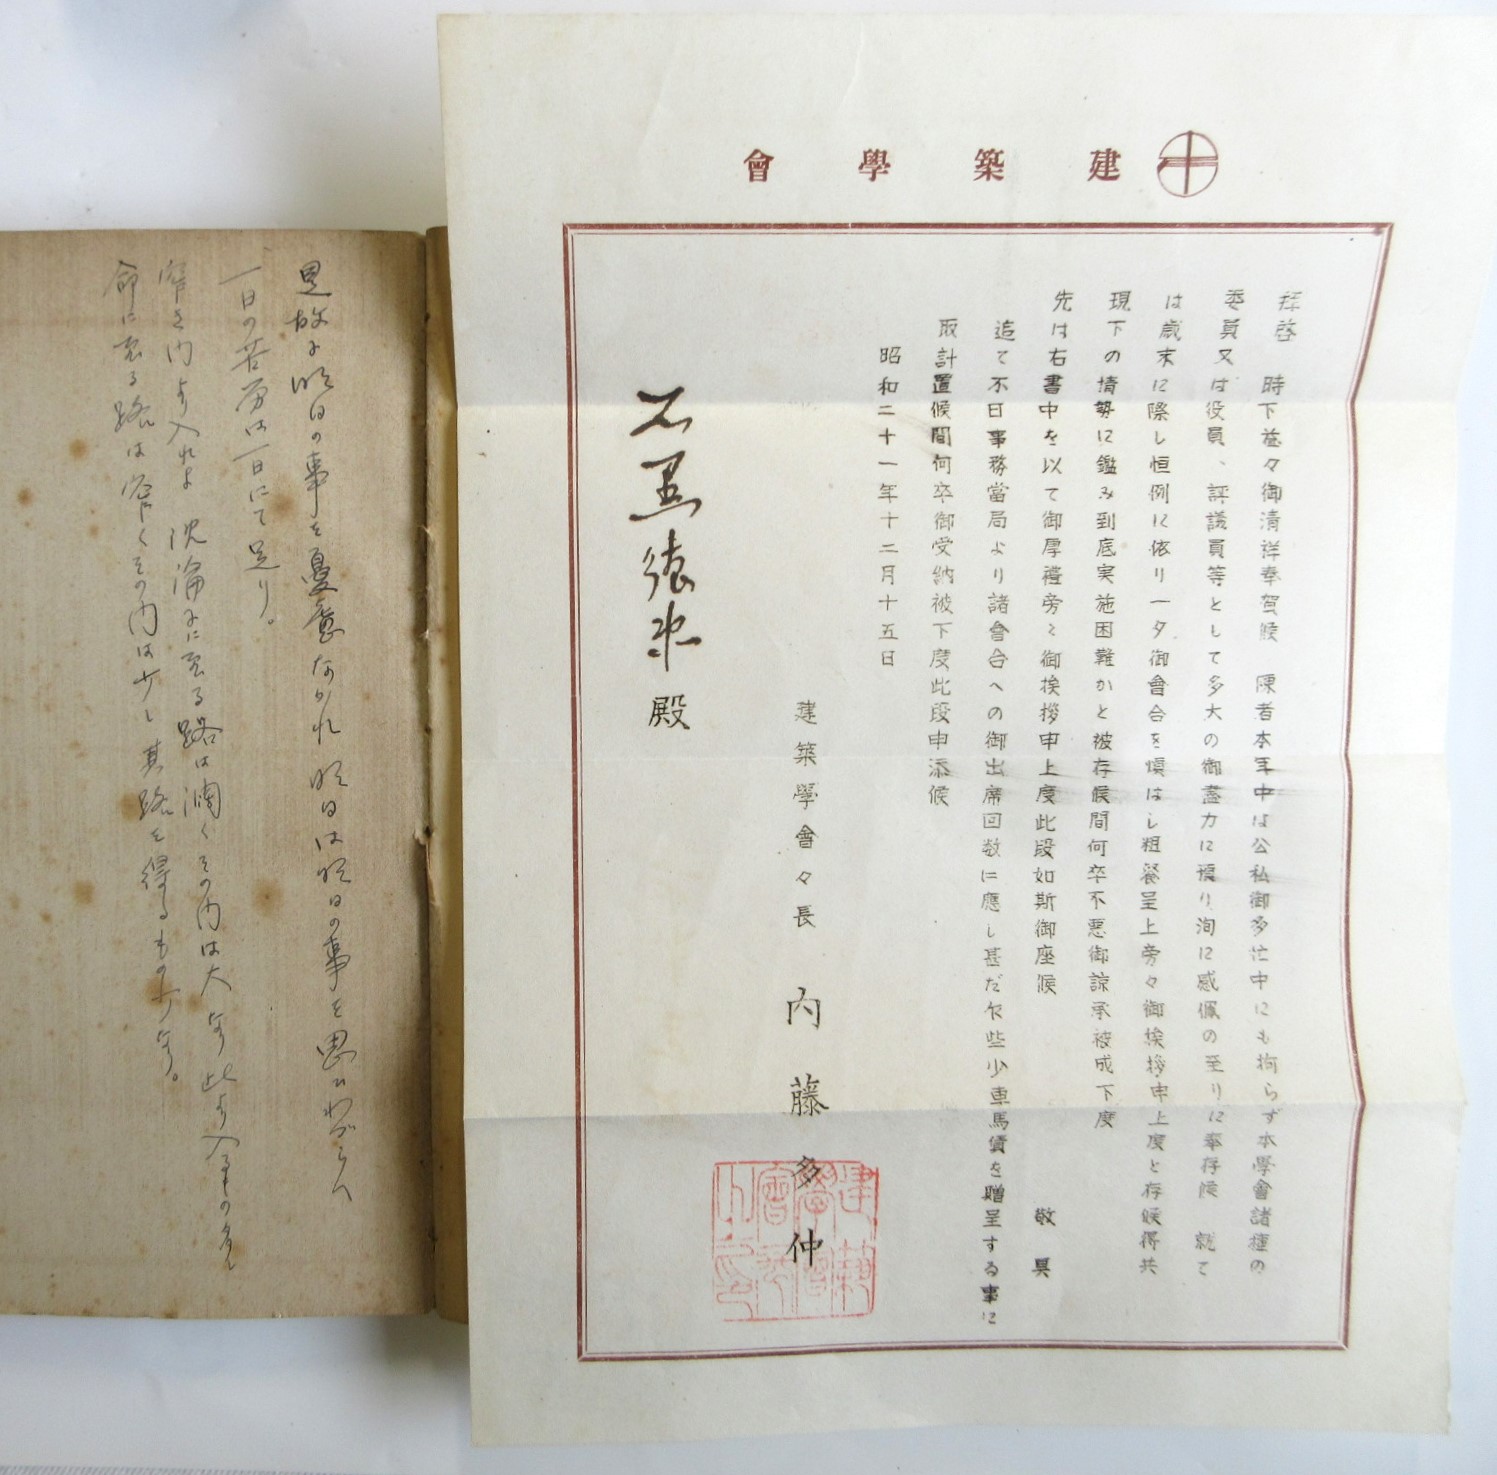 建築學會
拝啓 時下益々御清祥奉賀候 陳者本年中は公私御多忙中にも拘らず本學會諸種の
委員又は役員、評議員等として多大の御盡力に預り洵に感佩の至りに奉存候 就て
は歳末に際し恒例に依り一夕御會合を煩はし粗餐呈上旁々御挨拶申上度と存候得共
現下の情勢に鑑み到底実施困難かと被存候間何卒不悪御諒承被成下度
先は右書中を以て御厚禮旁々御挨拶申上度此段如斯御座候 敬具
追て不日事務當局より諸會合への御出席回数に應し甚だ乍些少車馬賃を贈呈する事に
取計置候間何卒御受納被下度此段申添候
昭和二十一年十二月十五日
建築學會々長 内藤多仲
殿
是故に明日の事を憂慮なかれ 明日は明日の事を思ひわづらへ
一日の苦労は一日にて足り。
窄き内より入れよ 沈淪に至る路は濶くその内は大なり 此より入るもの多し
命に至る路は窄くその内は少し 其路を得るもの少なり。